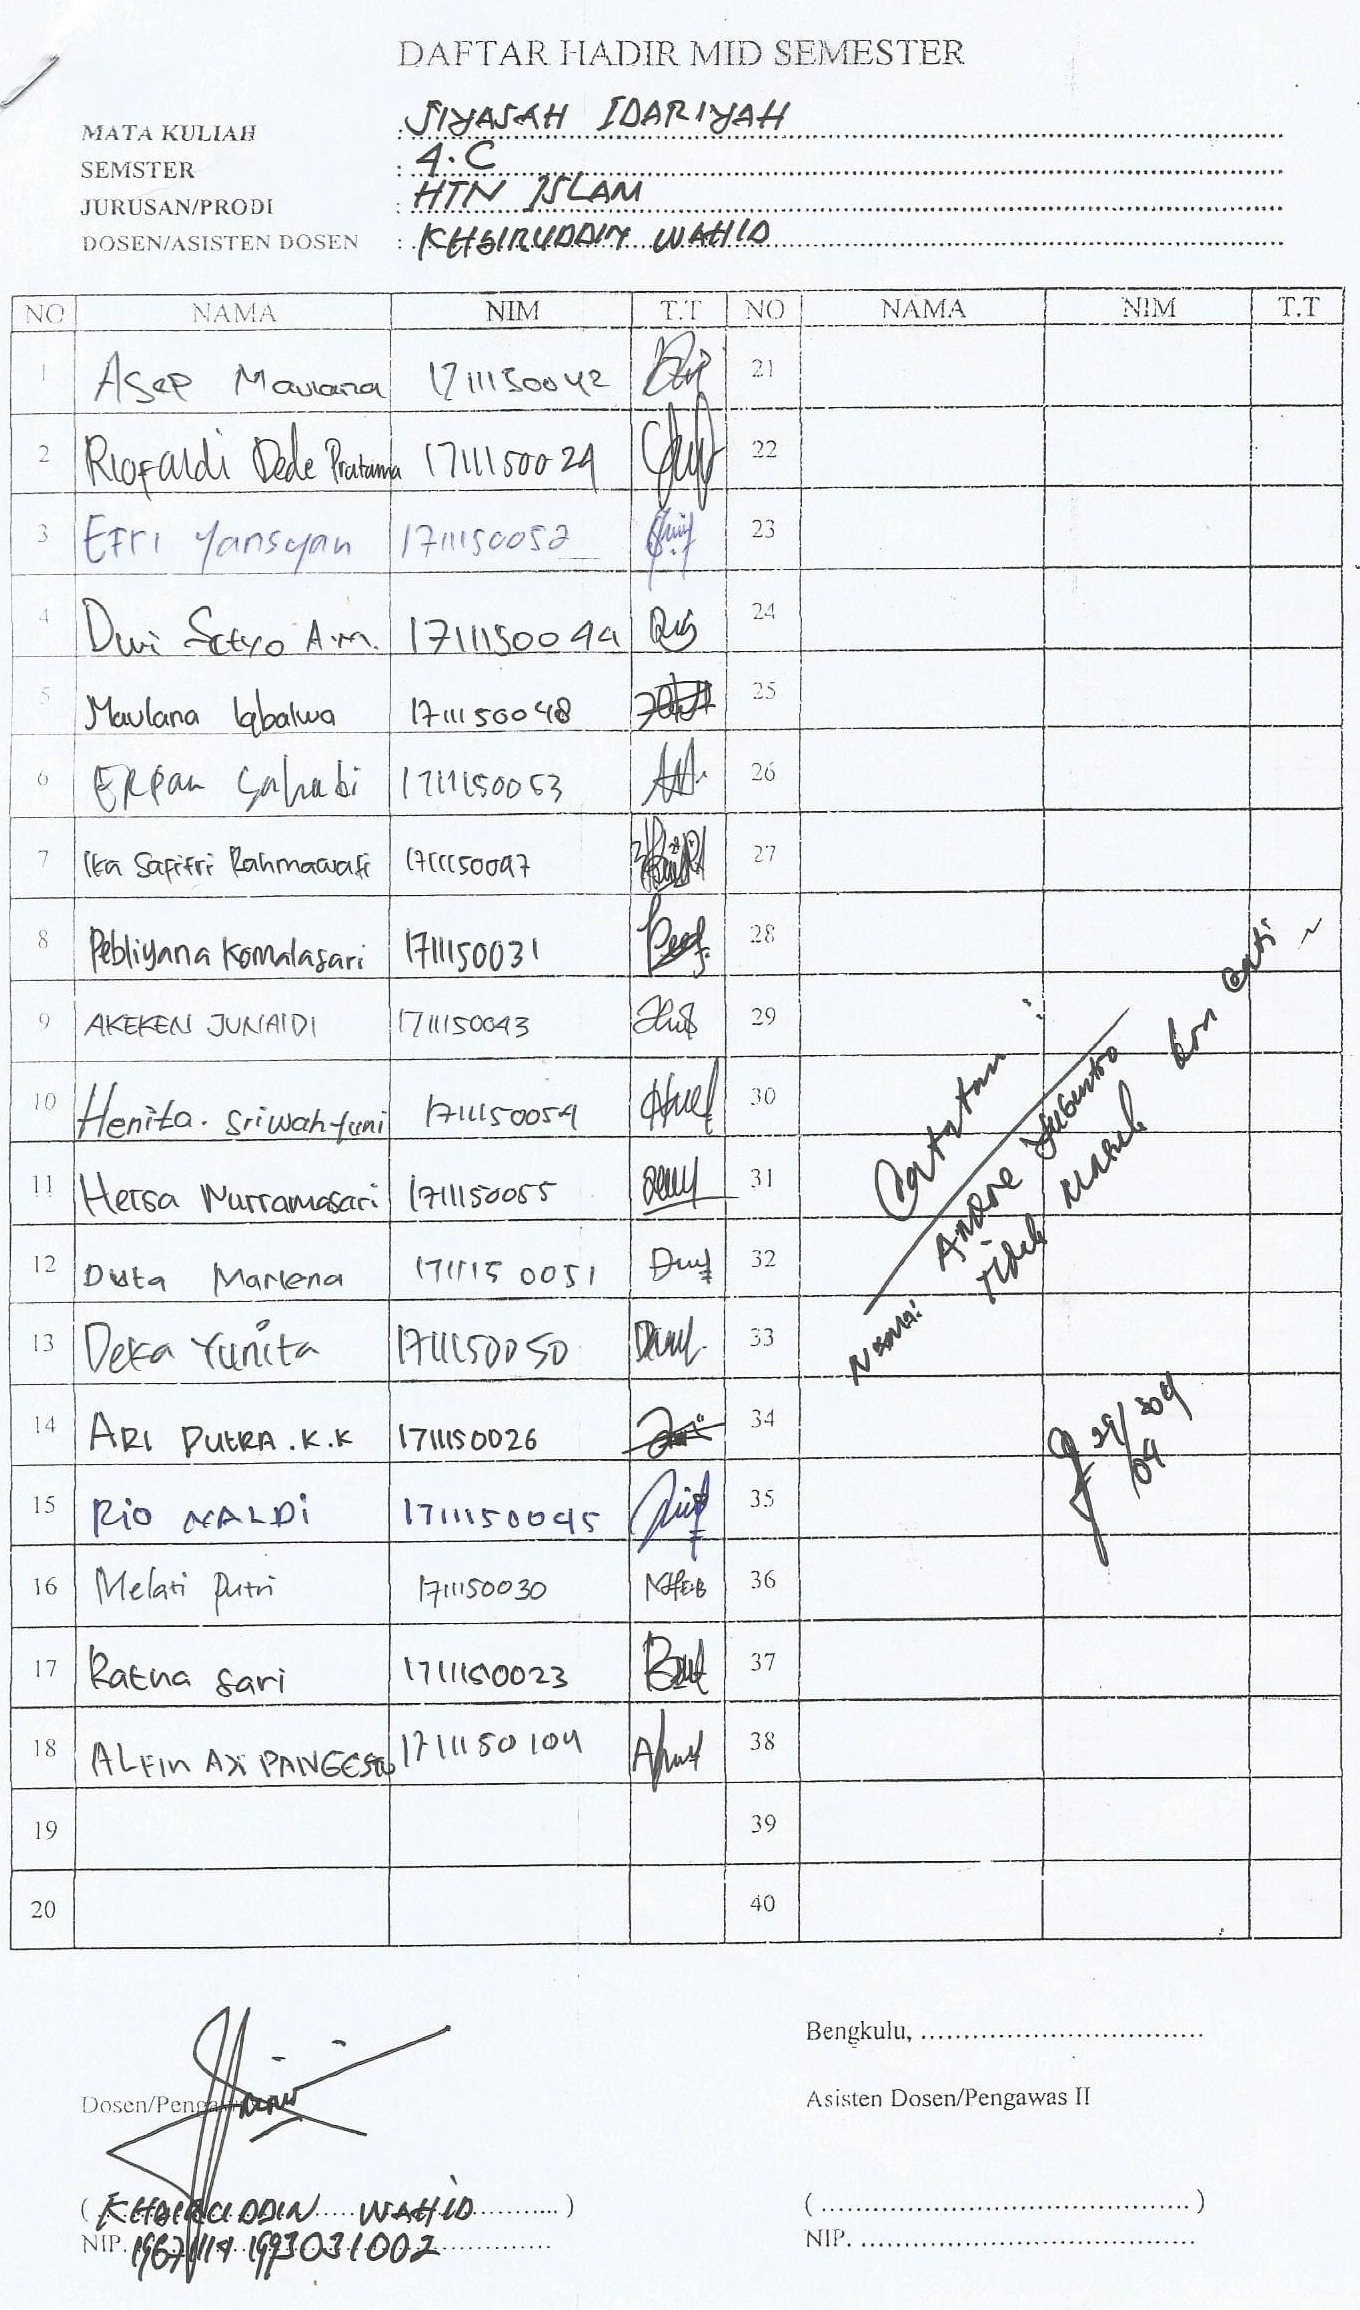 DAFTAR HADIR MID SEMESTER
MATA KULIAH : SIYASAH IDARIYAH
SEMSTER : 4.C
JURUSAN/PRODI : HTN ISLAM
DOSEN/ASISTEN DOSEN : KHAIRUDDIN WAHID
NO NAMA NIM T.T NO NAMA NIM T.T
1 Asep Maulana 1711150042 21
2 Riofaldi Dede Pratama 1711150024 22
3 Efri Yansyah 1711150052 23
4 Dwi Setyo A.M. 1711150044 24
5 Maulana Iqbalwa 1711150048 25
6 Erpan Sahabi 1711150053 26
7 Ika Safitri Rahmawati 1711150047 27
8 Pebliyana Komalasari 1711150031 28
9 AKEKEN JUNAIDI 1711150043 29
10 Henita. Sriwahyuni 1711150054 30
11 Hersa Nurramasari 1711150055 31
12 Duta Marlena 1711150051 32
13 Deka Yunita 1711150050 33
14 ARI PUTRA.K.K 1711150026 34
15 RIO NALDI 1711150045 35
16 Melati Putri 1711150030 36
17 Ratna Sari 1711150023 37
18 ALFIN AJI PANGESTU 1711150104 38
19 39
20 40
Catatan :
Nama: Andre
Tidak Masuk
29/04
Bengkulu, ................................
Dosen/Pengawas
Asisten Dosen/Pengawas II
( KHAIRUDDIN WAHID )
(..........................................)
NIP. 19671114 1993031002
NIP. ......................................